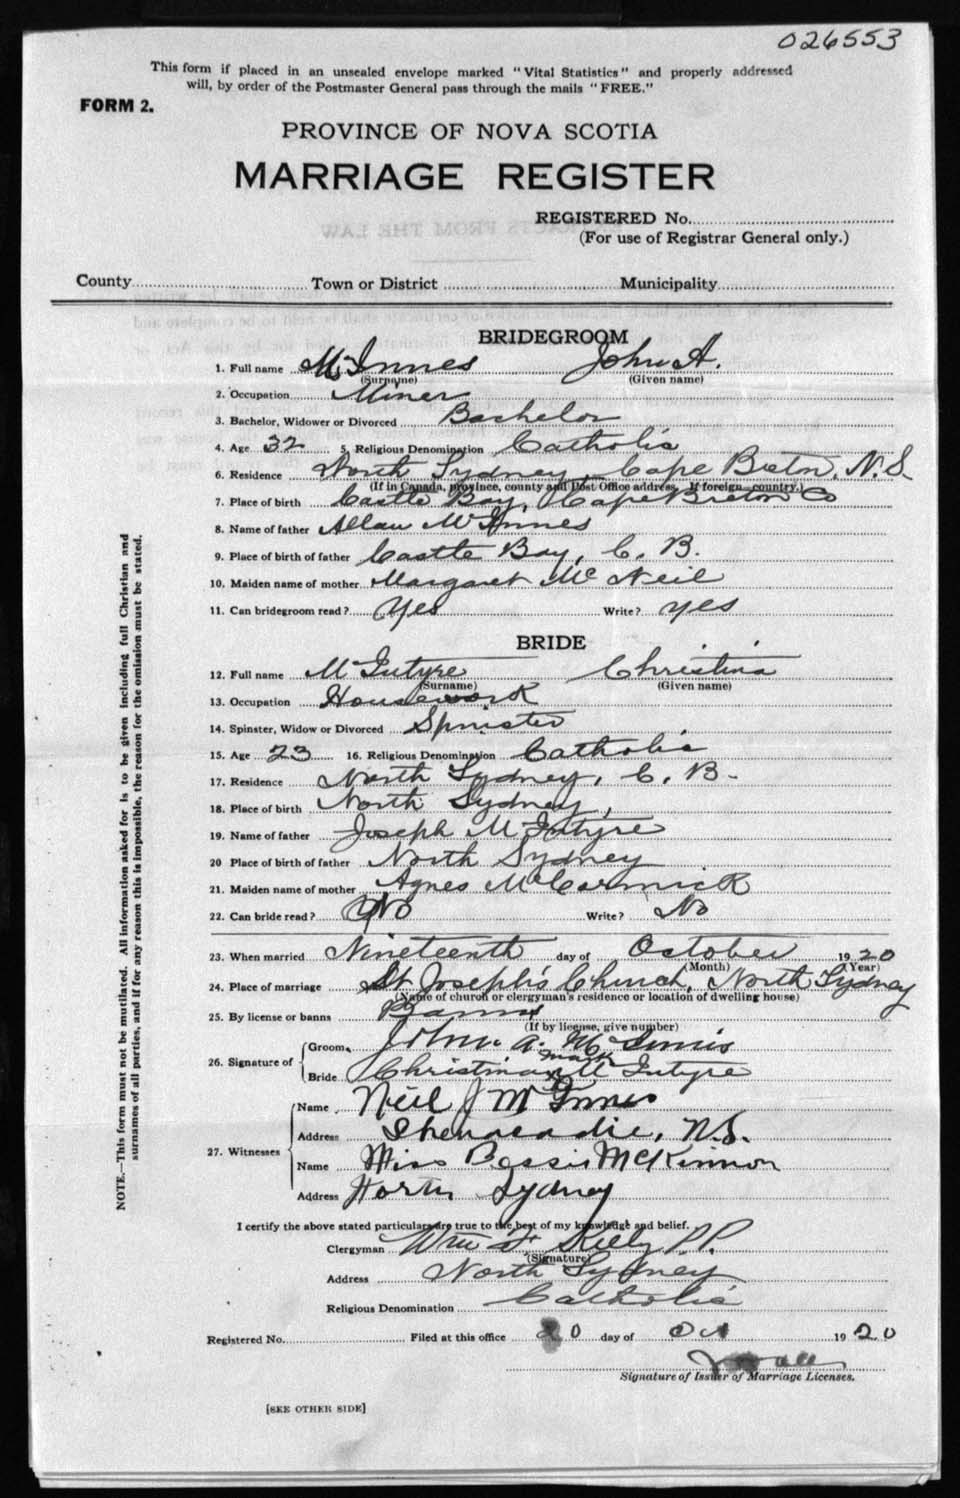 026553
This form if placed in an unsealed envelope marked "Vital Statistics" and properly addressed
will, by order of the Postmaster General pass through the mails "FREE."
FORM 2.
PROVINCE OF NOVA SCOTIA
MARRIAGE REGISTER
REGISTERED No.
(For use of Registrar General only.)
County Town or District Municipality
BRIDEGROOM
1. Full name McInnes John A.
(Surname) (Given name)
2. Occupation Miner
3. Bachelor, Widower or Divorced Bachelor
4. Age 32 5. Religious Denomination Catholic
6. Residence North Sydney, Cape Breton, N.S.
(If in Canada, province, county and Post Office address. If foreign, country.)
7. Place of birth Castle Bay, Cape Breton Co
8. Name of father Allan McInnes
9. Place of birth of father Castle Bay, C. B.
10. Maiden name of mother Margaret McNeil
11. Can bridegroom read? Yes Write? yes
BRIDE
12. Full name McIntyre Christina
(Surname) (Given name)
13. Occupation Housework
14. Spinster, Widow or Divorced Spinster
15. Age 23 16. Religious Denomination Catholic
17. Residence North Sydney, C. B.
18. Place of birth North Sydney,
19. Name of father Joseph McIntyre
20 Place of birth of father North Sydney
21. Maiden name of mother Agnes McCormick
22. Can bride read? No Write? No
23. When married Nineteenth day of October 1920
(Month) (Year)
24. Place of marriage St Joseph's Church, North Sydney
(Name of church or clergyman's residence or location of dwelling house)
25. By license or banns Banns
(If by license, give number)
26. Signature of Groom John A. McInnis
mark
Bride Christina x McIntyre
27. Witnesses
Name Neil J McInnes
Address Shenacadie, N.S.
Name Miss Bessie McKinnon
Address North Sydney
I certify the above stated particulars are true to the best of my knowledge and belief.
Clergyman Wm F Kiely P.P.
(Signature)
Address North Sydney
Religious Denomination Catholic
Registered No. Filed at this office 20 day of Oct 1920
Signature of Issuer of Marriage Licenses.
[SEE OTHER SIDE]
NOTE.—This form must not be mutilated. All information asked for is to be given including full Christian and
surnames of all parties, and if for any reason this is impossible, the reason for the omission must be stated.